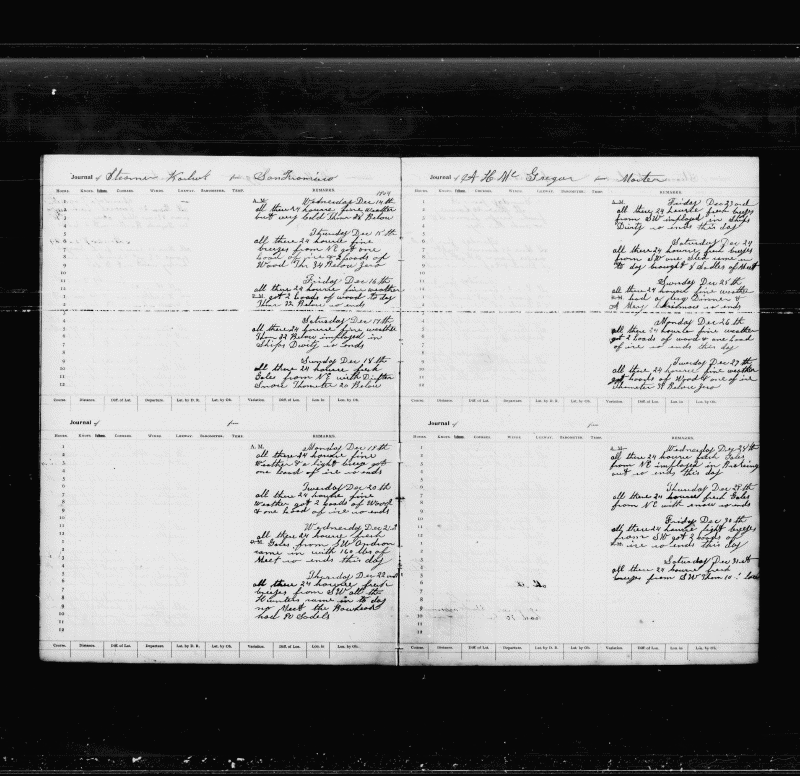 Journal of Steamer Karluk from San Francisco
HOURS. KNOTS. Fathoms. COURSES. WINDS. LEEWAY. BAROMETER. TEMP. REMARKS.
A. M. Wednesday Dec 14th
all these 24 hours fine weather
but very Cold Thur 28 Below
Thursday Dec 15th
all these 24 hourse fine
breezes from NE got one
load of ice & 2 loads of
Wood Thr 34 Below Zero
Friday Dec 16th
all these 24 hourse fine weather
got 2 loads of wood to day
Thur 32 Below so ends
Saturday Dec 17th
all these 24 hourse fine weather
Thom 22 Below imployed in
Ships Duity so ends
Sunday Dec 18th
all these 24 hourse fresh
Gales from NE with Driften
Snow Thometer 20 Below
Course. Distance. Diff. of Lat. Departure. Lat. by D. R. Lat. by Ob. Variation. Diff. of Lon. Lon. in Lon. by Ob.
Journal of from
HOURS. KNOTS. Fathoms. COURSES. WINDS. LEEWAY. BAROMETER. TEMP. REMARKS.
A. M. Monday Dec 19th
all these 24 hourse fine
Weather & a light breze got
one load of ice so ends
Tuesday Dec 20th
all these 24 hourse fine
Weather got 2 loads of Wood
& one load of ice so ends
Wednesday Dec 21st
all these 24 hourse fresh
Gales from SW Andrew
came in with 160 lbs of
Meet so ends this day
Thursday Dec 22nd
all these 24 hourse fresh
breezes from SW all the
Hunters came in to day
no Meet the Bowhead
had 80 Sadels
Course. Distance. Diff. of Lat. Departure. Lat. by D. R. Lat. by Ob. Variation. Diff. of Lon. Lon. in Lon. by Ob.
Journal of A H Mc Gregor from Master
HOURS. KNOTS. Fathoms. COURSES. WINDS. LEEWAY. BAROMETER. TEMP. REMARKS.
A. M. Friday Dec 23rd
all these 24 hourse fresh breezes
from SW imployed in Ships
Duity so ends this day
Saturday Dec 24
all these 24 hourse fine breezes
from SW one sled came in
to day brought 4 Sadles of Meet
Sunday Dec 25th
all these 24 hourse fine weather
had a Dinner &
A Mery Christmas so ends
Monday Dec 26th
all these 24 hourse fine weather
got 2 loads of wood & one load
of ice so ends this day
Tuesday Dec 27th
all these 24 hourse fine weather
got loads of Wood & one of ice
Thometer 38 Below Zero
Course. Distance. Diff. of Lat. Departure. Lat. by D. R. Lat. by Ob. Variation. Diff. of Lon. Lon. in Lon. by Ob.
Journal of from
HOURS. KNOTS. Fathoms. COURSES. WINDS. LEEWAY. BAROMETER. TEMP. REMARKS.
A. M. Wednesday Dec 28th
all these 24 hourse fresh Gales
from NE imployed in
out so ends this day
Thursday Dec 29th
all these 24 hourse fresh Gales
from NE with snow so ends
Friday Dec 30th
all these 24 hourse light breezes
from SW got 2 loads of
ice so ends this day
Saturday Dec 31st
all these 24 hourse fresh
breezes from SW Thom 10
Course. Distance. Diff. of Lat. Departure. Lat. by D. R. Lat. by Ob. Variation. Diff. of Lon. Lon. in Lon. by Ob.